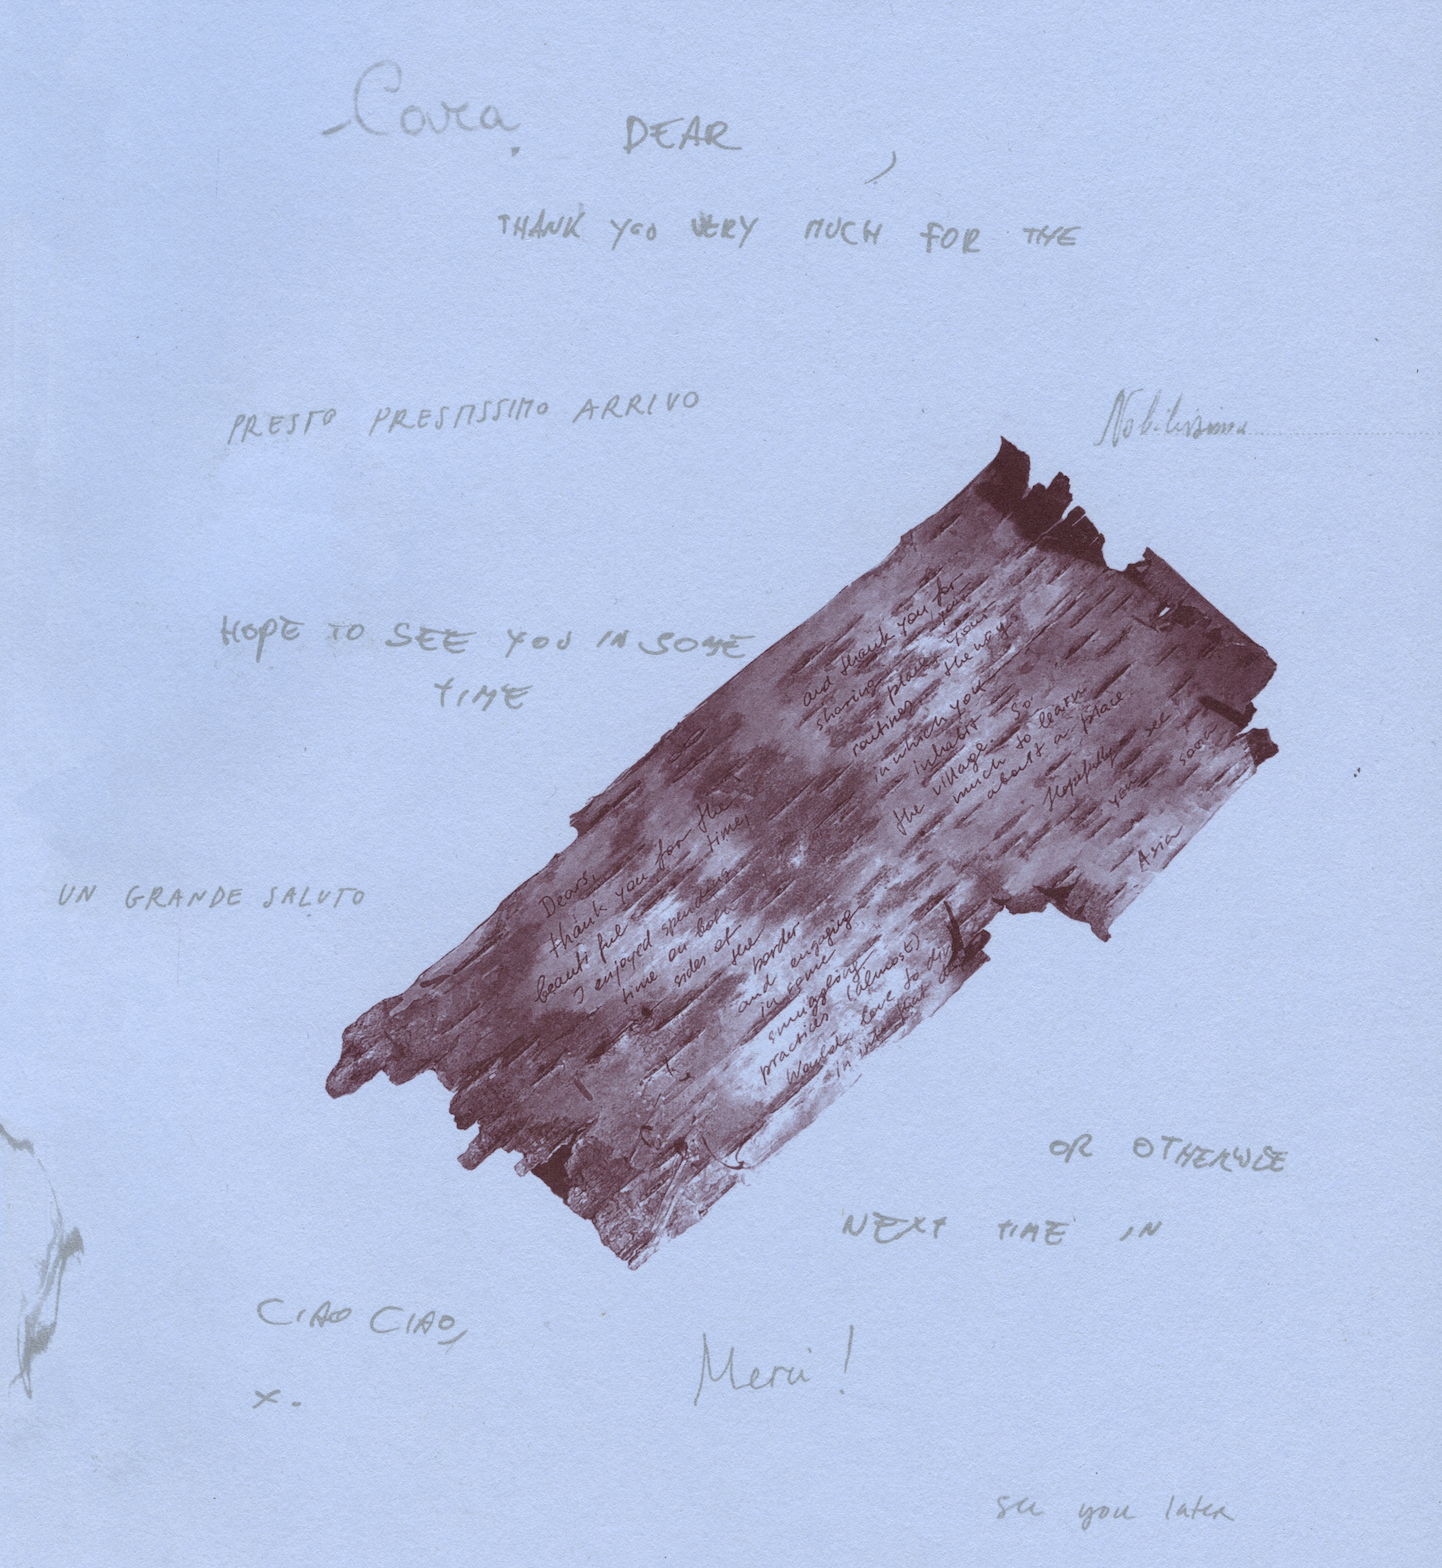 Cara
DEAR ,
THANK YOU VERY MUCH FOR THE
PRESTO PRESTISSIMO ARRIVO
Nobilissima
HOPE TO SEE YOU IN SOME
TIME
UN GRANDE SALUTO
Dears,
thank you for the
beautiful time,
I enjoyed spending
time on both
sides of
the
border
and engaging
in some
smuggling
practices (almost)
Would love to
in into that
and thank you for
sharing your
places, your
routines... the way
in which you
inhabit
the village. So
much to learn
about a place.
Hopefully see
you soon
Asia
OR OTHERWISE
NEXT TIME IN
CIAO CIAO,
x.
Merci!
see you later